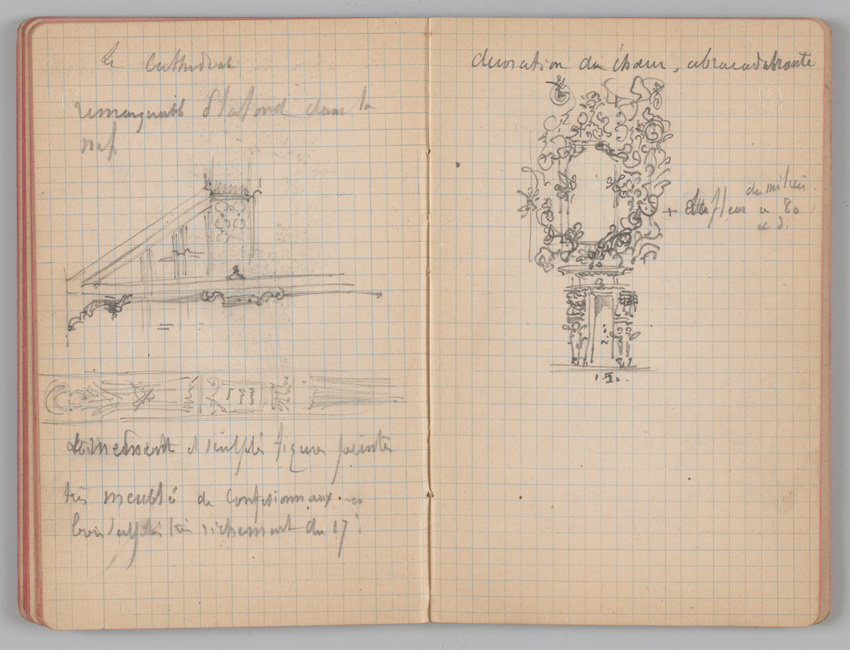 la Cathédrale
remarquable Plafond dans la
nef
et sculptés figures peintes
très meublé de Confessionnaux en
bois sculptés très richement du 17
décoration du chœur, abracadabrante
+
fleur
du milieu
a 80
et d.
2.
1.50.